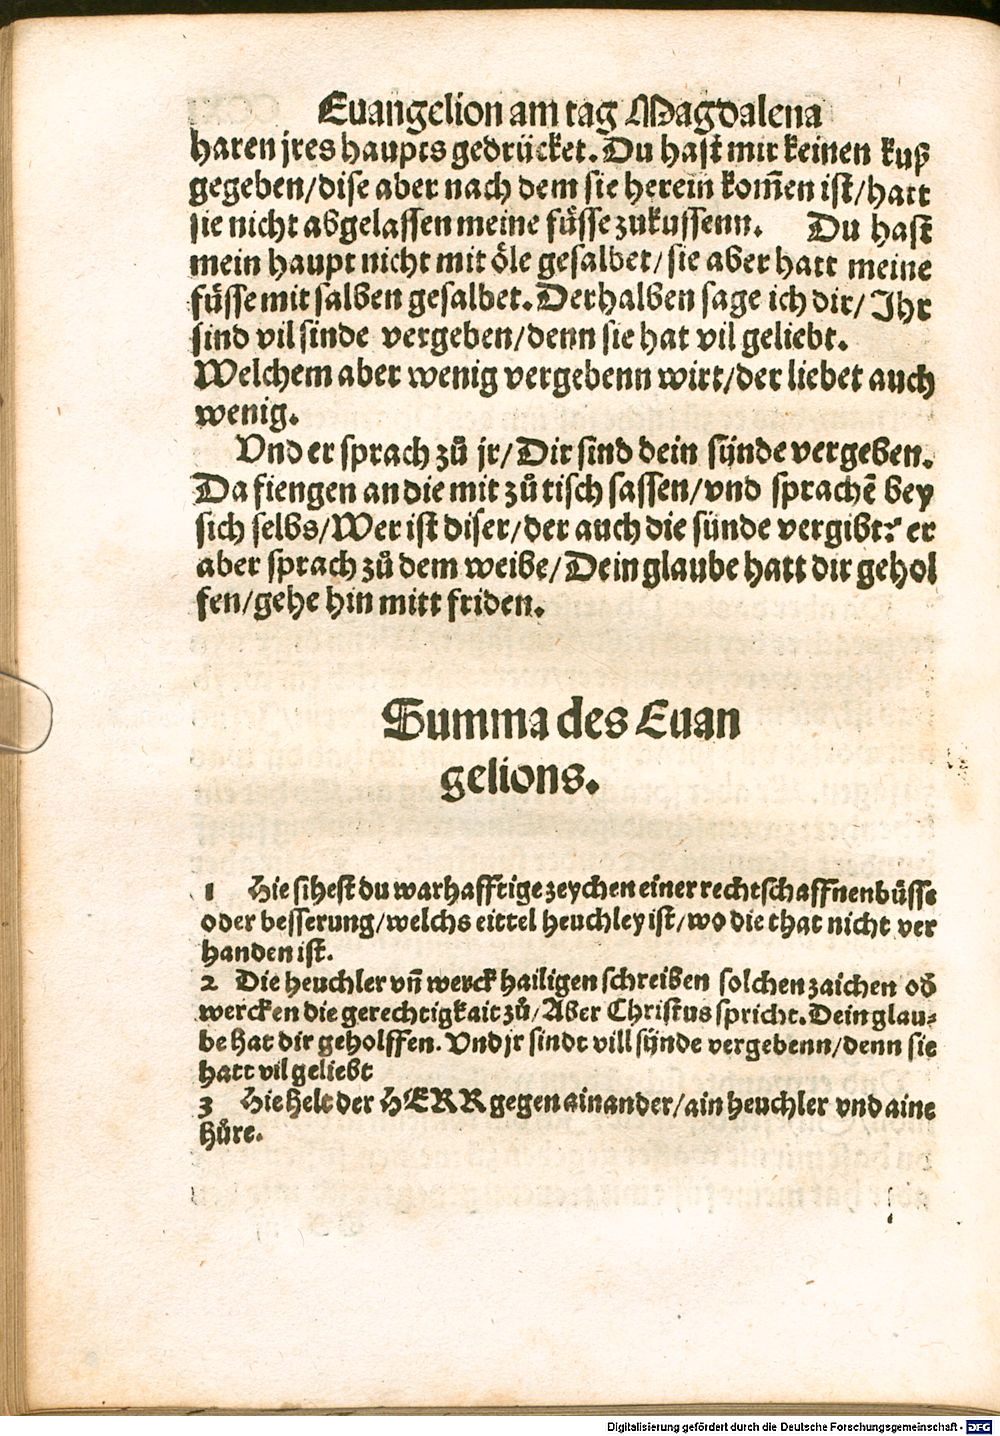 Euangelion am tag Magdalena
haren jres haupts gedrücket. Du hast mir keinen kuß
gegeben/dise aber nach dem sie herein kom̃en ist/hatt
sie nicht abgelassen meine fuͤsse zukussenn. Du hast
mein haupt nicht mit oͤle gesalbet/sie aber hatt meine
fuͤsse mit salben gesalbet. Derhalben sage ich dir/Ihr
sind vil sinde vergeben/denn sie hat vil geliebt.
Welchem aber wenig vergebenn wirt/der liebet auch
wenig.
Vnd er sprach zuͦ jr/Dir sind dein sünde vergeben.
Da fiengen an die mit zuͦ tisch sassen/vnd sprachẽ bey
sich selbs/Wer ist diser/der auch die sünde vergibt? er
aber sprach zuͦ dem weibe/Dein glaube hatt dir gehol
fen/gehe hin mitt friden.
Summa des Euan
gelions.
1 Hie sihest du warhafftige zeychen einer rechtschaffnen buͤsse
oder besserung/welchs eittel heuchley ist/wo die that nicht ver
handen ist.
2 Die heuchler vñ werck hailigen schreiben solchen zaichen od̃
wercken die gerechtigkait zuͦ/Aber Christus spricht. Dein glau-
be hat dir geholffen. Vnd jr sindt vill sünde vergebenn/denn sie
hatt vil geliebt
3 Hie helt der HERR gegen ainander/ain heuchler vnd aine
huͦre.
Digitalisierung gefördert durch die Deutsche Forschungsgemeinschaft - DFG